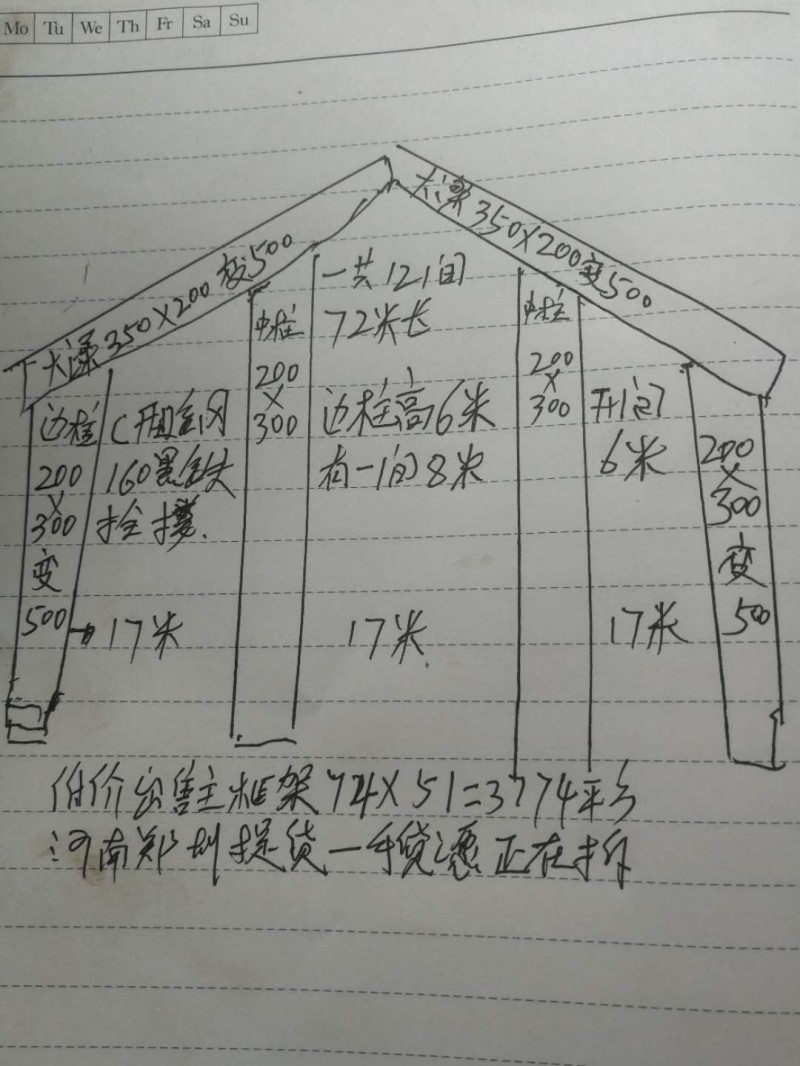 Mo Tu We Th Fr Sa Su
大梁350×200变500
大梁350×200变500
边柱
200
×
300
变
500
C
160黑铁
中柱
200
×
300
一共12间
72米长
边柱高6米
有一间8米
中柱
200
×
300
开间
6米
200
×
300
变
500
→17米
17米
17米
价出售主框架74×51=3774平方
河南郑州提货一手货源正在拆